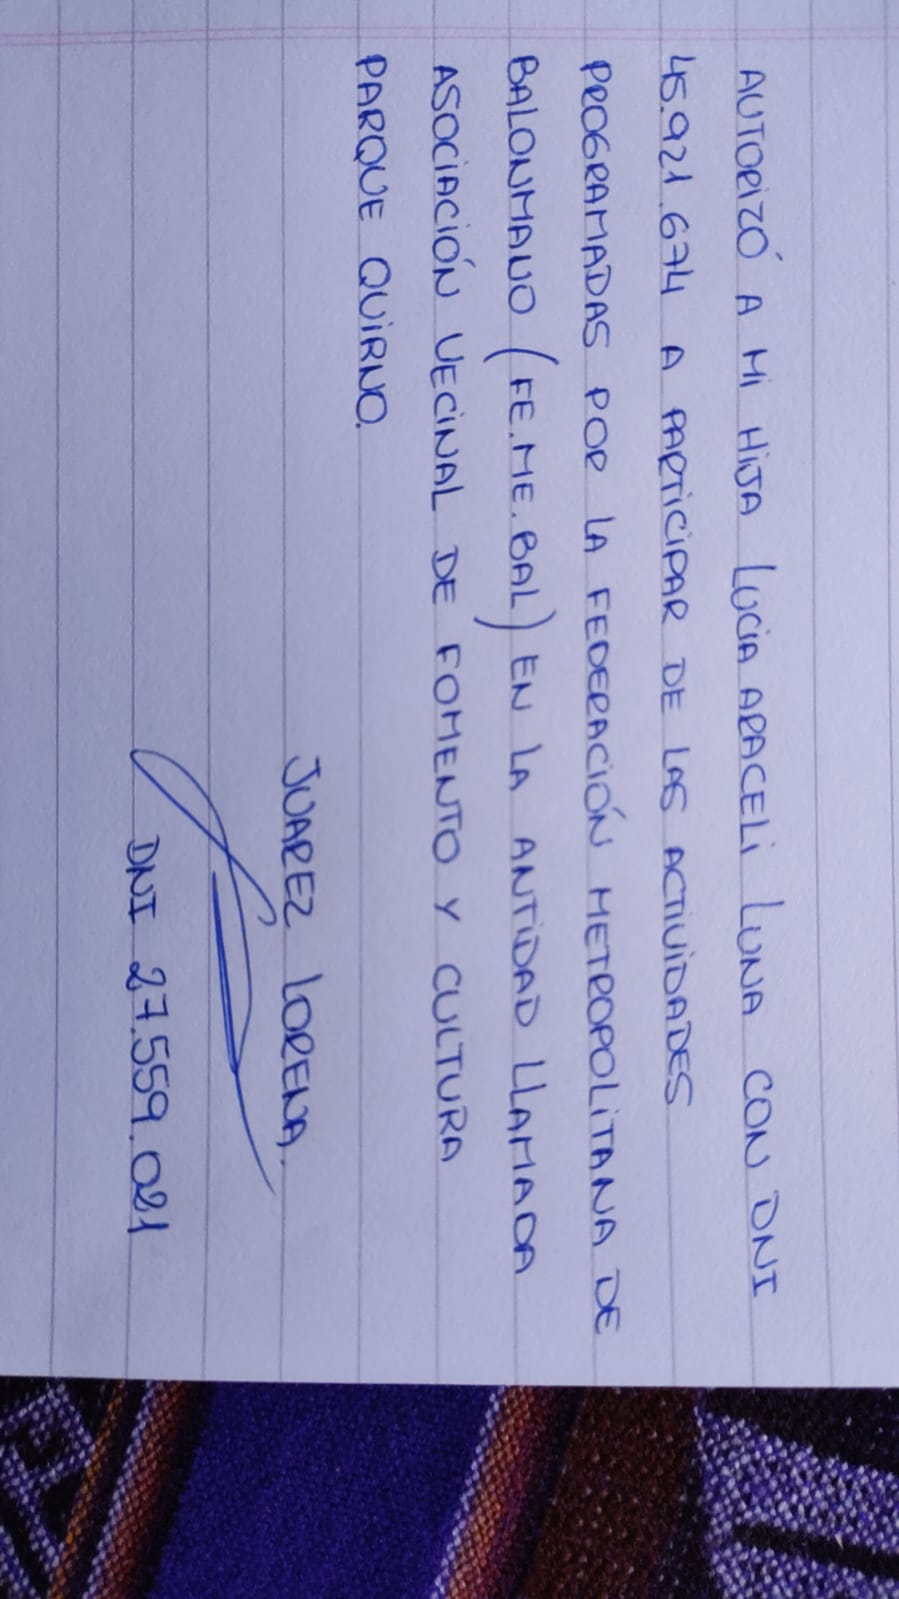 AUTORIZÓ A MI HIJA LUCIA ARACELI LUNA CON DNI
45.921.674 A PARTICIPAR DE LAS ACTIVIDADES
PROGRAMADAS POR LA FEDERACIÓN METROPOLITANA DE
BALONMANO (FE.ME.BAL) EN LA ANTIDAD LLAMADA
ASOCIACIÓN VECINAL DE FOMENTO Y CULTURA
PARQUE QUIRNO.
JUAREZ LORENA.
DNI 27.559.021